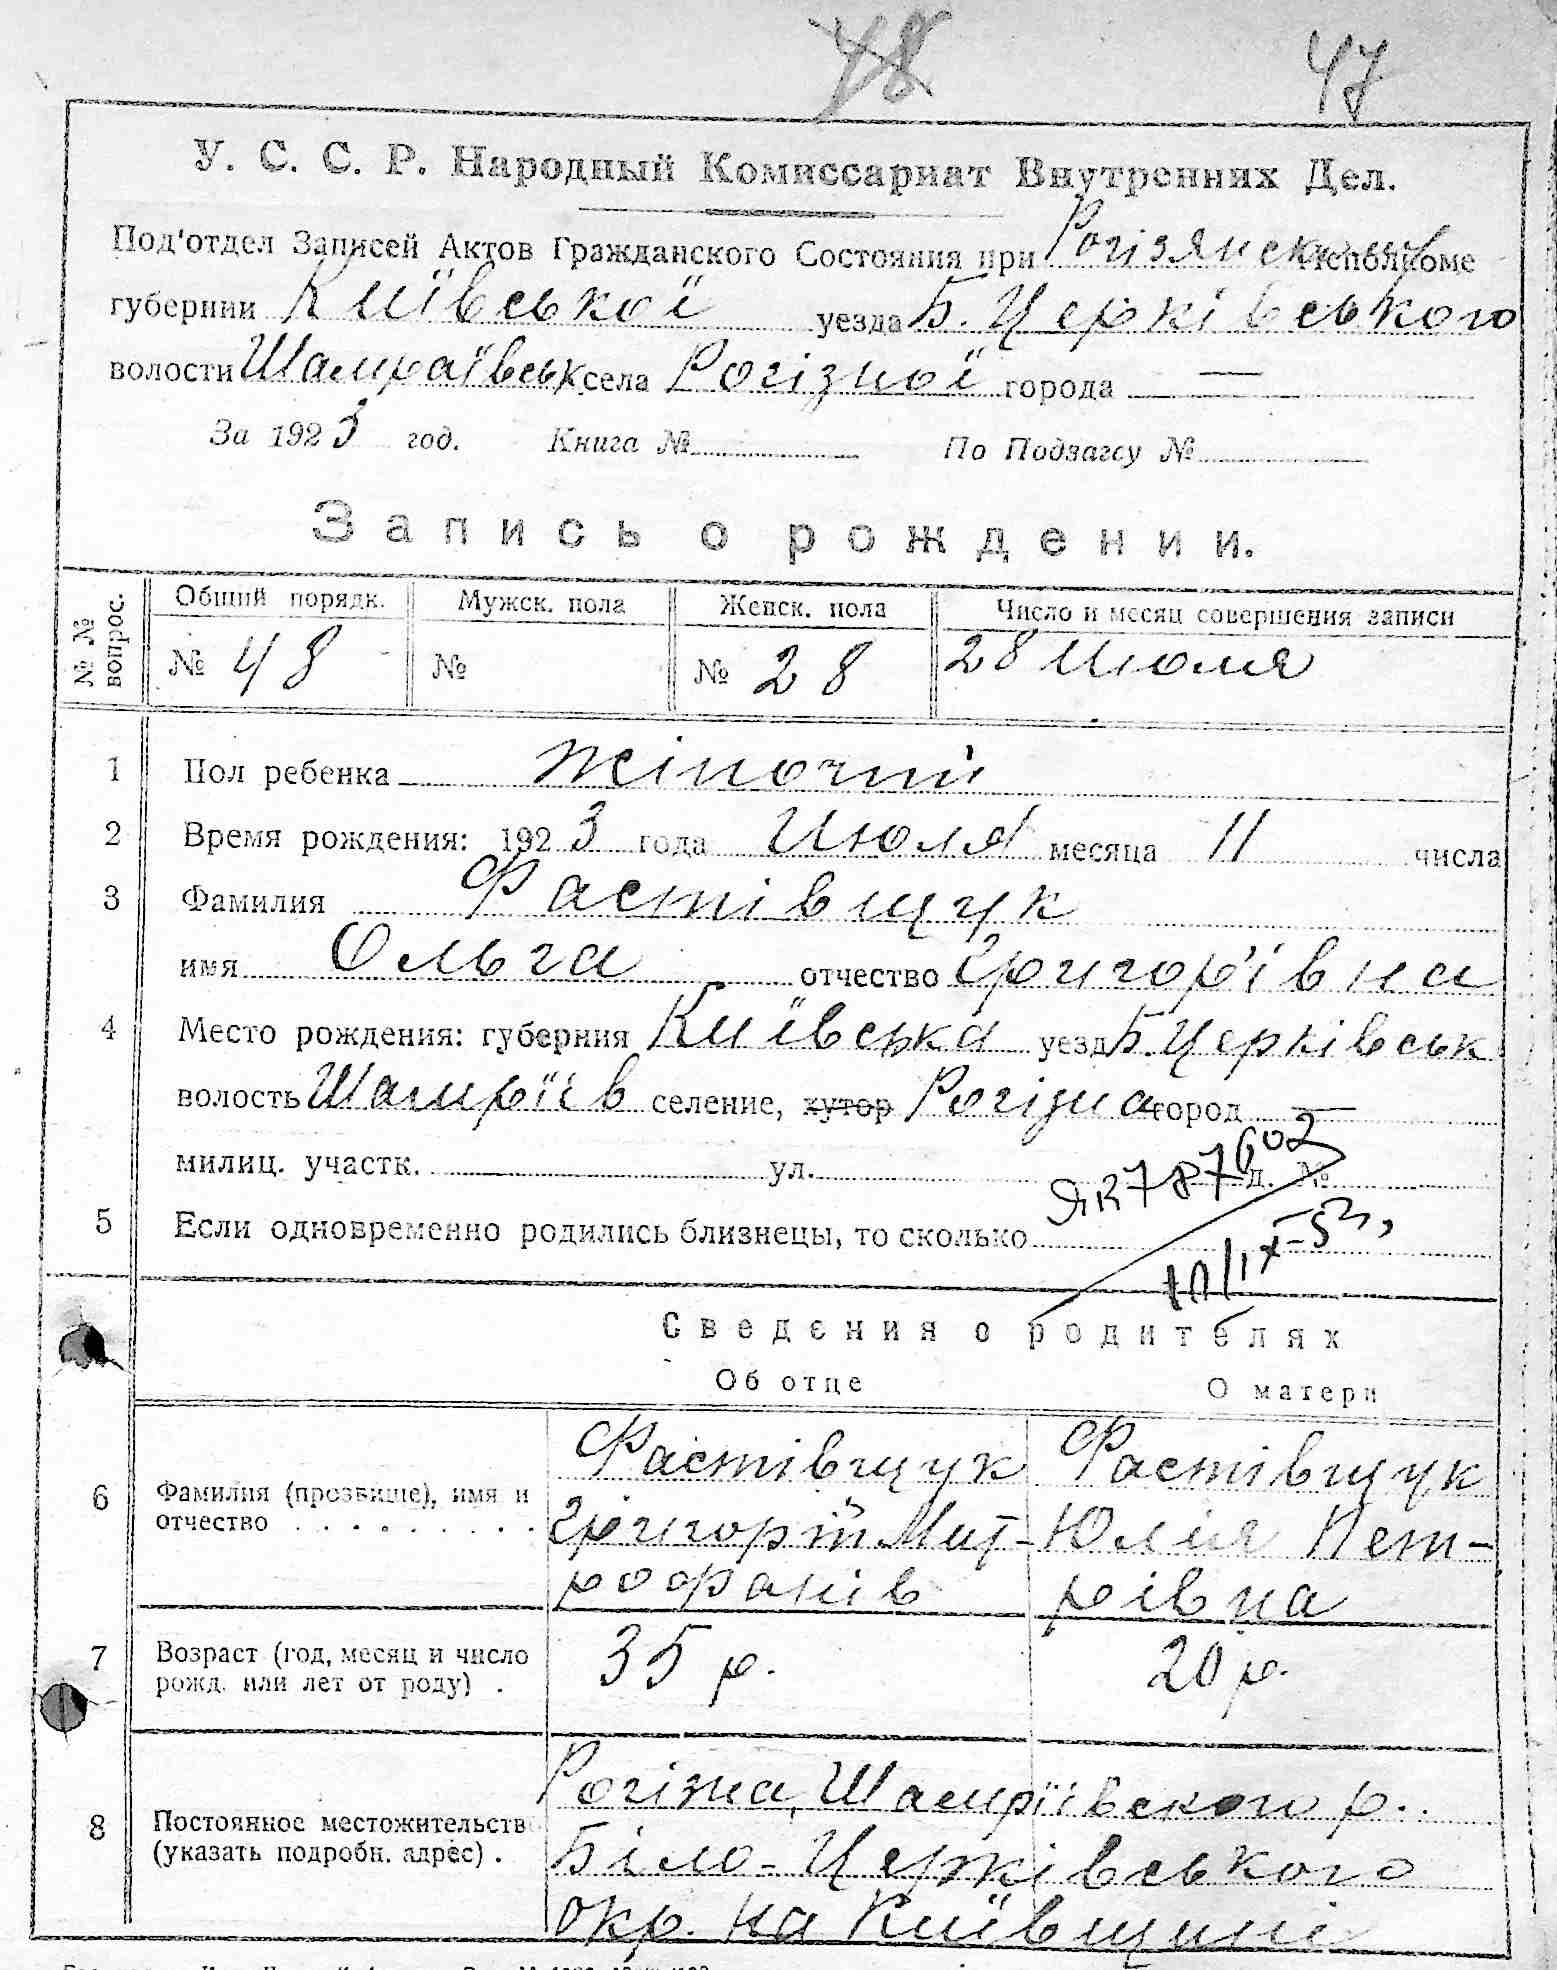 48 47
У. С. С. Р. Народный Комиссариат Внутренних Дел.
Под'отдел Записей Актов Гражданского Состояния при Рогізянском Исполкоме
губернии Київської уезда Б. Церківського
волости Шамраївськ села Рогізної города —
За 1923 год. Книга № По Подзагсу №
Запись о рождении.
№ № вопрос. Общий порядк. Мужск. пола Женск. пола Число и месяц совершения записи
№ 48 № № 28 28 Июля
1 Пол ребенка жіночий
2 Время рождения: 1923 года Июля месяца 11 числа
3 Фамилия Фастівщук
имя Ольга отчество Григор'івна
4 Место рождения: губерния Київська уезд Б. Церківськ
волость Шамріїв селение, хутор Рогізна город —
милиц. участк. ул. д. №
ЯК 787602
5 Если одновременно родились близнецы, то сколько
Сведения о родителях
Об отце О матери
6 Фамилия (прозвище), имя и отчество Фастівщук Григорій Мит-рофанів Фастівщук Юлія Пет-рівна
7 Возраст (год, месяц и число рожд. или лет от роду) . 35 р. 20 р.
8 Постоянное местожительств (указать подробн. адрес) . Рогізна, Шамріївского р.
Біло-Церківського
окр. на Київщині